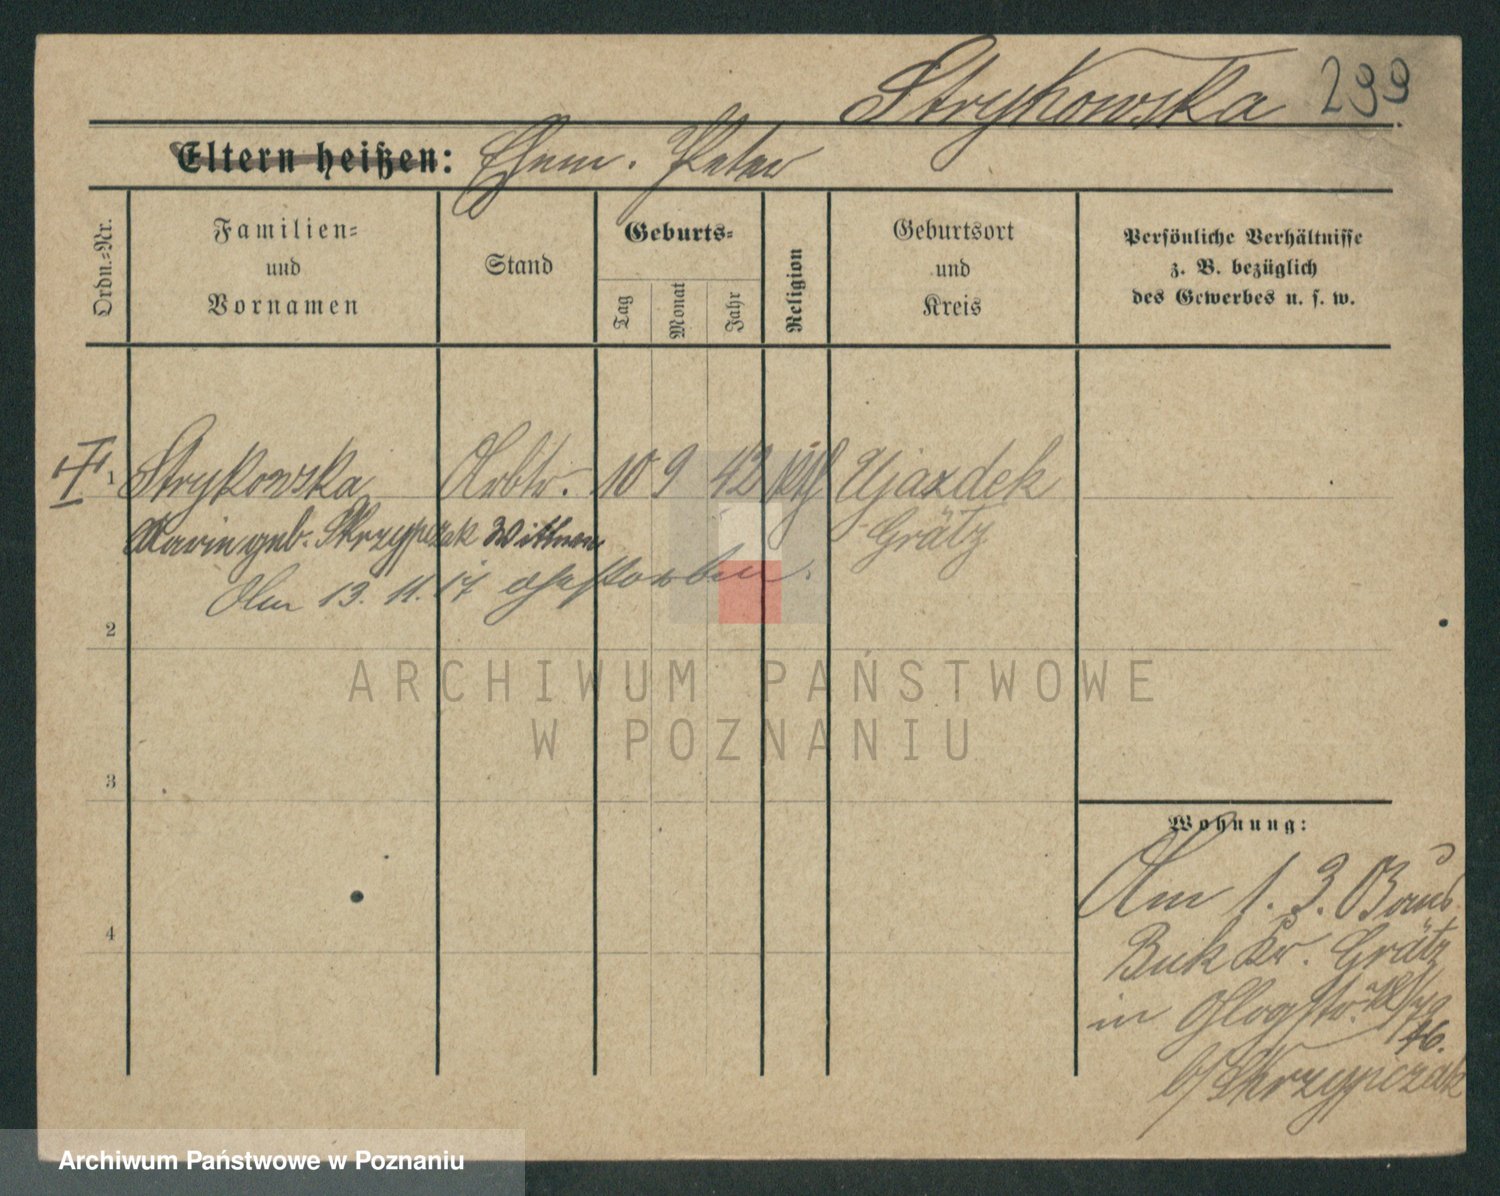 Strykowska 299.
Eltern heißen: Ehem. Peter
Ordn.-Nr.
Familien-
und
Vornamen
Stand
Geburts-
Tag
Monat
Jahr
Religion
Geburtsort
und
Kreis
Persönliche Verhältnisse
z. B. bezüglich
des Gewerbes u. s. w.
1 Strykowska Arbtr. 10 9 42 kth Ujazdek
Marie geb. Skrzypczak Wittwe Grätz
Am 13. 11. 17 gestorben.
2
3
4
Wohnung:
Am 1. 3.
Buk Kr. Grätz
in Glogstr.
16.
b/ Skrzypczak
ARCHIWUM PAŃSTWOWE
W POZNANIU
Archiwum Państwowe w Poznaniu